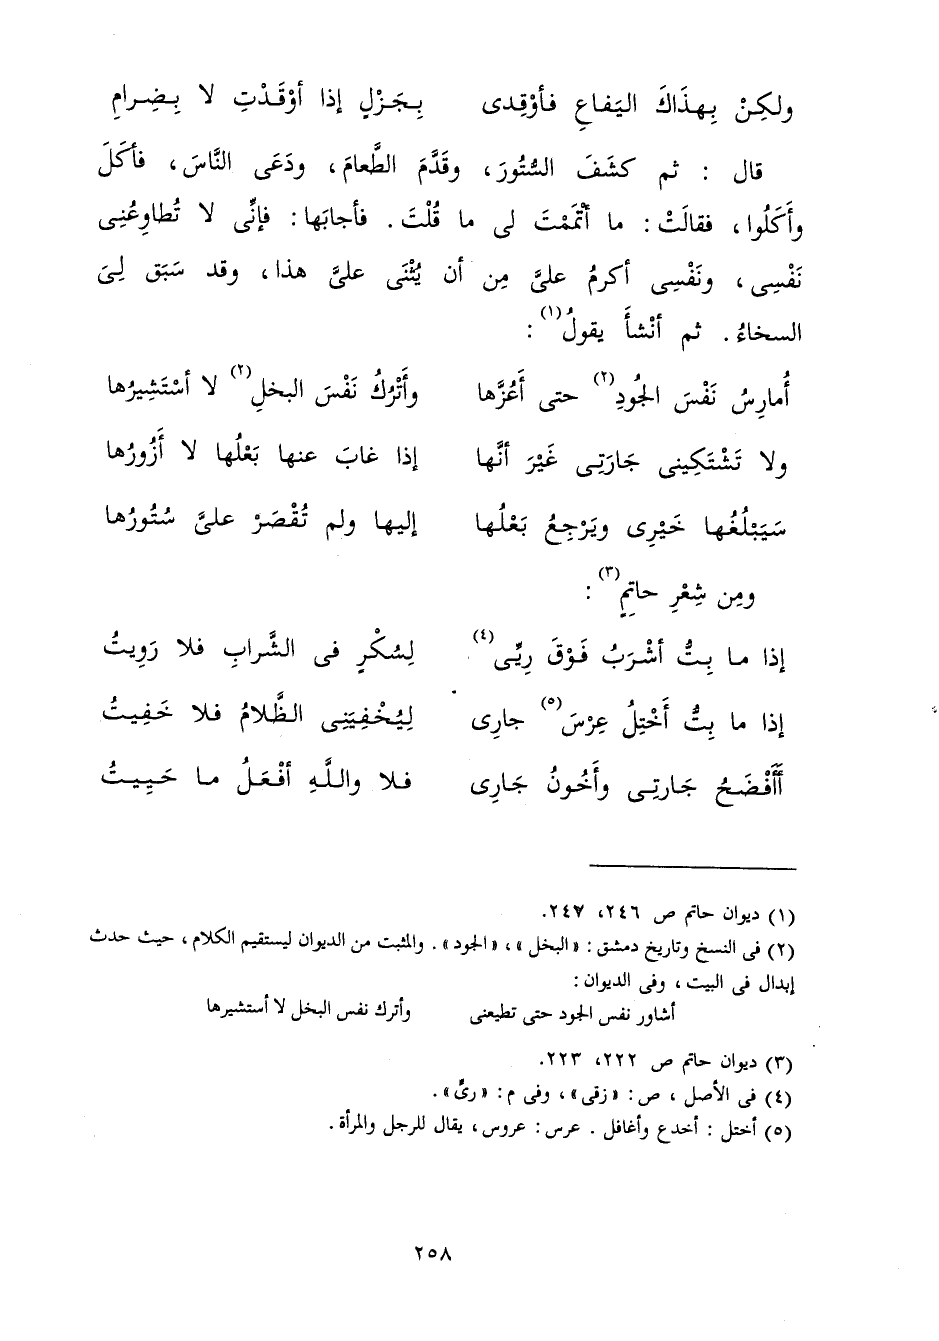 ولكِنْ بِهذَاكَ اليَفاعِ فأوْقِدى بِجَزْلٍ إذا أوْقَدْتِ لا بِضِرامِ
قال : ثم كشَفَ السُّتُورَ، وقَدَّمَ الطَّعامَ، ودَعَى النَّاسَ، فأكَلَ
وأَكَلُوا، فقالَتْ: ما أتْمَمْتَ لى ما قُلْتَ. فأجابَها: فإنِّى لا تُطاوِعُنِى
نَفْسِى، ونَفْسِى أكرمُ علىَّ مِن أن يُثْنَى علىَّ هذا، وقد سَبَق لِىَ
السخاءُ. ثم أنْشأَ يقولُ(١) :
أُمارِسُ نَفْسَ الجُودِ(٢) حتى أَعُزَّها وأَتْرُكُ نَفْسَ البخلِ(٢) لا أسْتَشِيرُها
ولا تَشْتَكِينى جَارَتِى غَيْرَ أنَّها إذا غابَ عنها بَعْلُها لا أَزُورُها
سَيَبْلُغُها خَيْرِى ويَرْجِعُ بَعْلُها إليها ولم تُقْصَرْ علىَّ سُتُورُها
ومِن شِعْرِ حاتِمٍ(٣) :
إذا ما بِتُّ أشْرَبُ فَوْقَ رِيِّى(٤) لِسُكْرٍ فى الشَّرابِ فلا رَوِيتُ
إذا ما بِتُّ أَخْتِلُ عِرْسَ(٥) جارِى لِيُخْفِيَنِى الظَّلامُ فلا خَفِيتُ
أَأَفْضَحُ جَارتِى وأَخُونُ جَارِى فلا واللَّهِ أفْعَلُ ما حَيِيتُ
(١) ديوان حاتم ص ٢٤٦، ٢٤٧.
(٢) فى النسخ وتاريخ دمشق: «البخل»، «الجود». والمثبت من الديوان ليستقيم الكلام، حيث حدث
إبدال فى البيت، وفى الديوان:
أشاور نفس الجود حتى تطيعنى وأترك نفس البخل لا أستشيرها
(٣) ديوان حاتم ص ٢٢٢، ٢٢٣.
(٤) فى الأصل، ص: «زقى»، وفى م: «رىٍّ».
(٥) أختل: أخدع وأغافل. عرس: عروس، يقال للرجل والمرأة.
٢٥٨